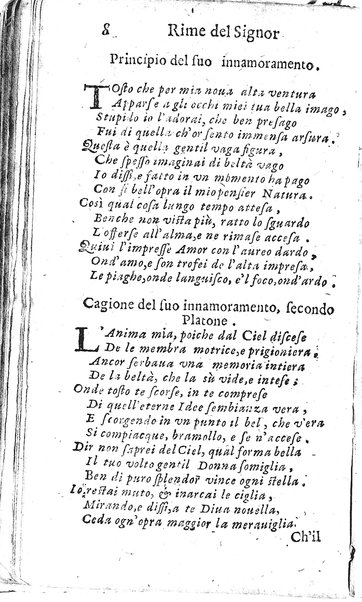 8 Rime del Signor
Principio del suo innamoramento.
TOsto che per mia noua alta ventura
Apparse a gli occhi miei tua bella imago,
Stupido io l'adorai, che ben presago
Fui di quella ch'or sento immensa arsura.
Questa è quella gentil vaga figura,
Che spesso imaginai di beltà vago
Io dissi, e fatto in vn momento hà pago
Con sì bell'opra il mio pensier Natura.
Così qual cosa lungo tempo attesa,
Benche non vista più, ratto lo sguardo
L'offerse all'alma, e ne rimase accesa.
Quiui l'impresse Amor con l'aureo dardo,
Ond'amo, e son trofei de l'alta impresa,
Le piaghe, onde languisco, e'l foco, ond'ardo.
Cagione del suo innamoramento, secondo
Platone.
L'Anima mia, poiche dal Ciel discese
De le membra motrice, e prigioniera,
Ancor serbaua vna memoria intiera
De la beltà, che la sù vide, e intese;
Onde tosto te scorse, in te comprese
Di quell'eterne Idee sembianza vera,
E scorgendo in vn punto il bel, che v'era
Si compiacque, bramollo, e se n'accese.
Dir non saprei del Ciel, qual forma bella
Il tuo volto gentil Donna somiglia,
Ben di puro splendor vince ogni stella.
Io restai muto, & inarcai le ciglia,
Mirando, e dissi, a te Diua nouella,
Ceda ogn'opra maggior la merauiglia.
Ch'il